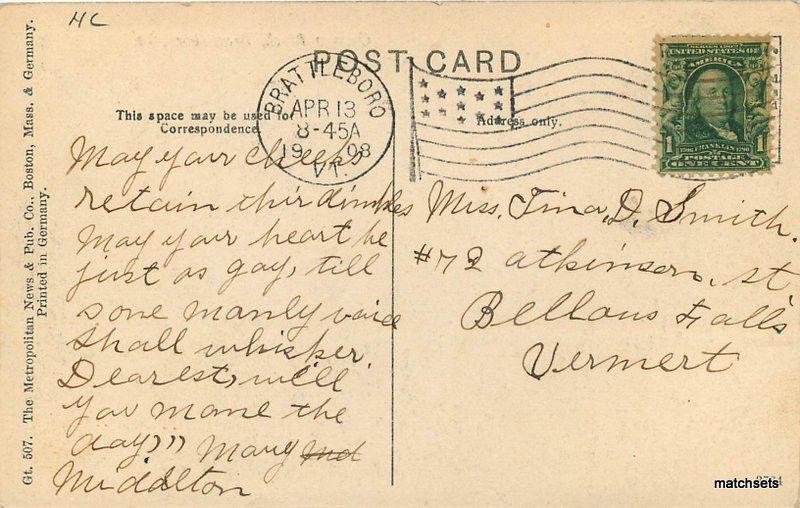 HC
POST CARD
This space may be used for
Correspondence.
Address only.
BRATTLEBORO
APR 13
8-45A
1908
VT.
SERIES 1902
UNITED STATES OF
AMERICA
1 FRANKLIN 1
POSTAGE
ONE CENT
May your cheeks
retain their dimples
May your heart be
just as gay, till
some manly voice
shall whisper.
Dearest, will
you name the
day," Mary
Middleton
Miss. Tina, D, Smith.
#72 atkinson, st
Bellows Falls
Vermert
Gt. 507. The Metropolitan News & Pub. Co., Boston, Mass. & Germany.
Printed in Germany.
matchsets